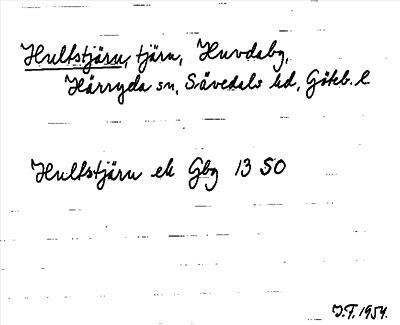 Hultstjärn, tjärn, Huvdaby,
Härryda sn, Sävedals hd, Göteb. l
Hultstjärn ek Gbg 13 SO
J.F. 1954.